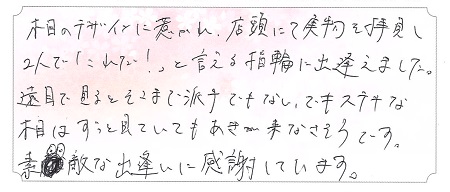 木目のデザインに惹かれ、店頭にて実物を拝見し
2人で「これだ!」と言える指輪に出逢えました。
遠目で見るとそこまで派手でもなし、でもステキな
木目はずっと見ていてもあきが来なさそうです。
素敵な出逢いに感謝しています。